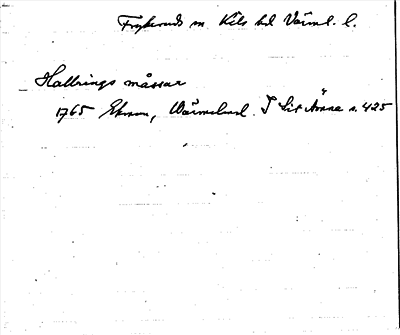 Frykeruds sn Kils hd Värml. l.
Hallrings måssar
1765 Ekman, Wärmeland. I sit Ämne s. 425